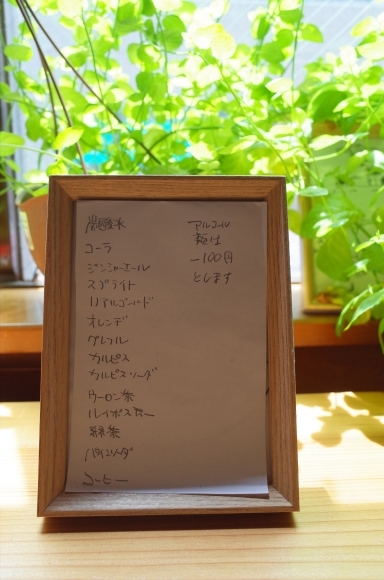 コーラ
ジンジャーエール
スプライト
リアルゴールド
オレンヂ
グレフル
カルピス
カルピスソーダ
ウーロン茶
ルイボスティー
緑茶
コーヒー
アルコール
類は
-100円
とします